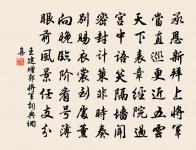 承恩新拜上將軍
當直巡更近五雲
天下表章經院過
宮中語笑隔牆聞
密封計策非時奏
別賜衣裳到處薰
向晚臨階看號簿
眼前風景任支分
王建贈郭將軍詞典網
喜